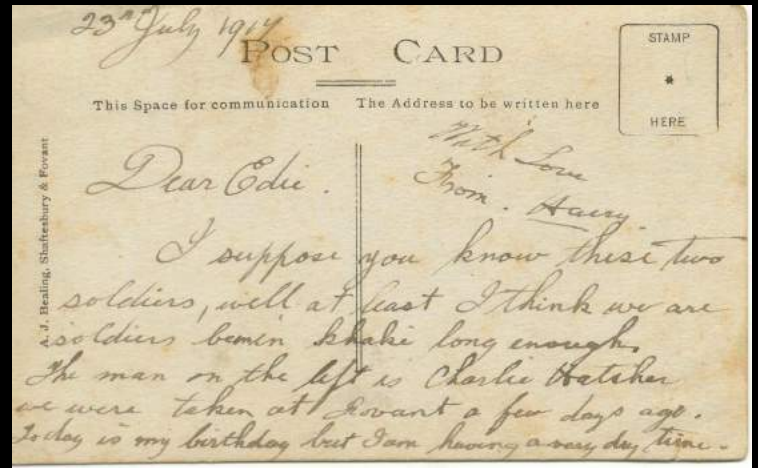 23rd July 1917
POST CARD
STAMP
HERE
This Space for communication
The Address to be written here
A. J. Healing, Shaftesbury & Fovant
With Love
From. Harry
Dear Edie.
I suppose you know these two
soldiers, well at least I think we are
soldiers been in khaki long enough.
The man on the left is Charlie Hatcher
we were taken at Fovant a few days ago.
Today is my birthday but I am having a very dry time.